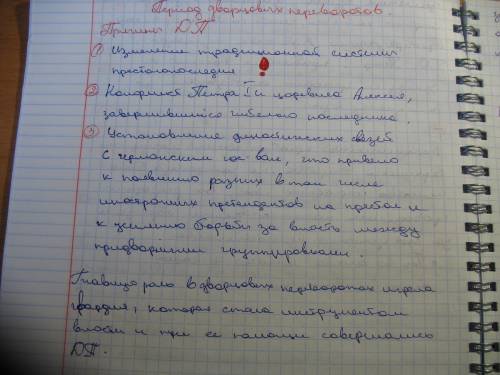 Период дворцовых переворотов
Причины ДП
① Изменение традиционной системы
престолонаследия !
② Конфликт Петра I и царевича Алексея,
завершившийся гибелью последнего.
③ Установление династических связей
с германским гос-вом, что привело
к появлению разных в том числе
иностранных претендентов на престол и
к усилению борьбы за власть между
придворными группировками.
Главную роль в дворцовых переворотах играла
гвардия, которая стала инструментом
власти и при её помощи совершались
ДП.